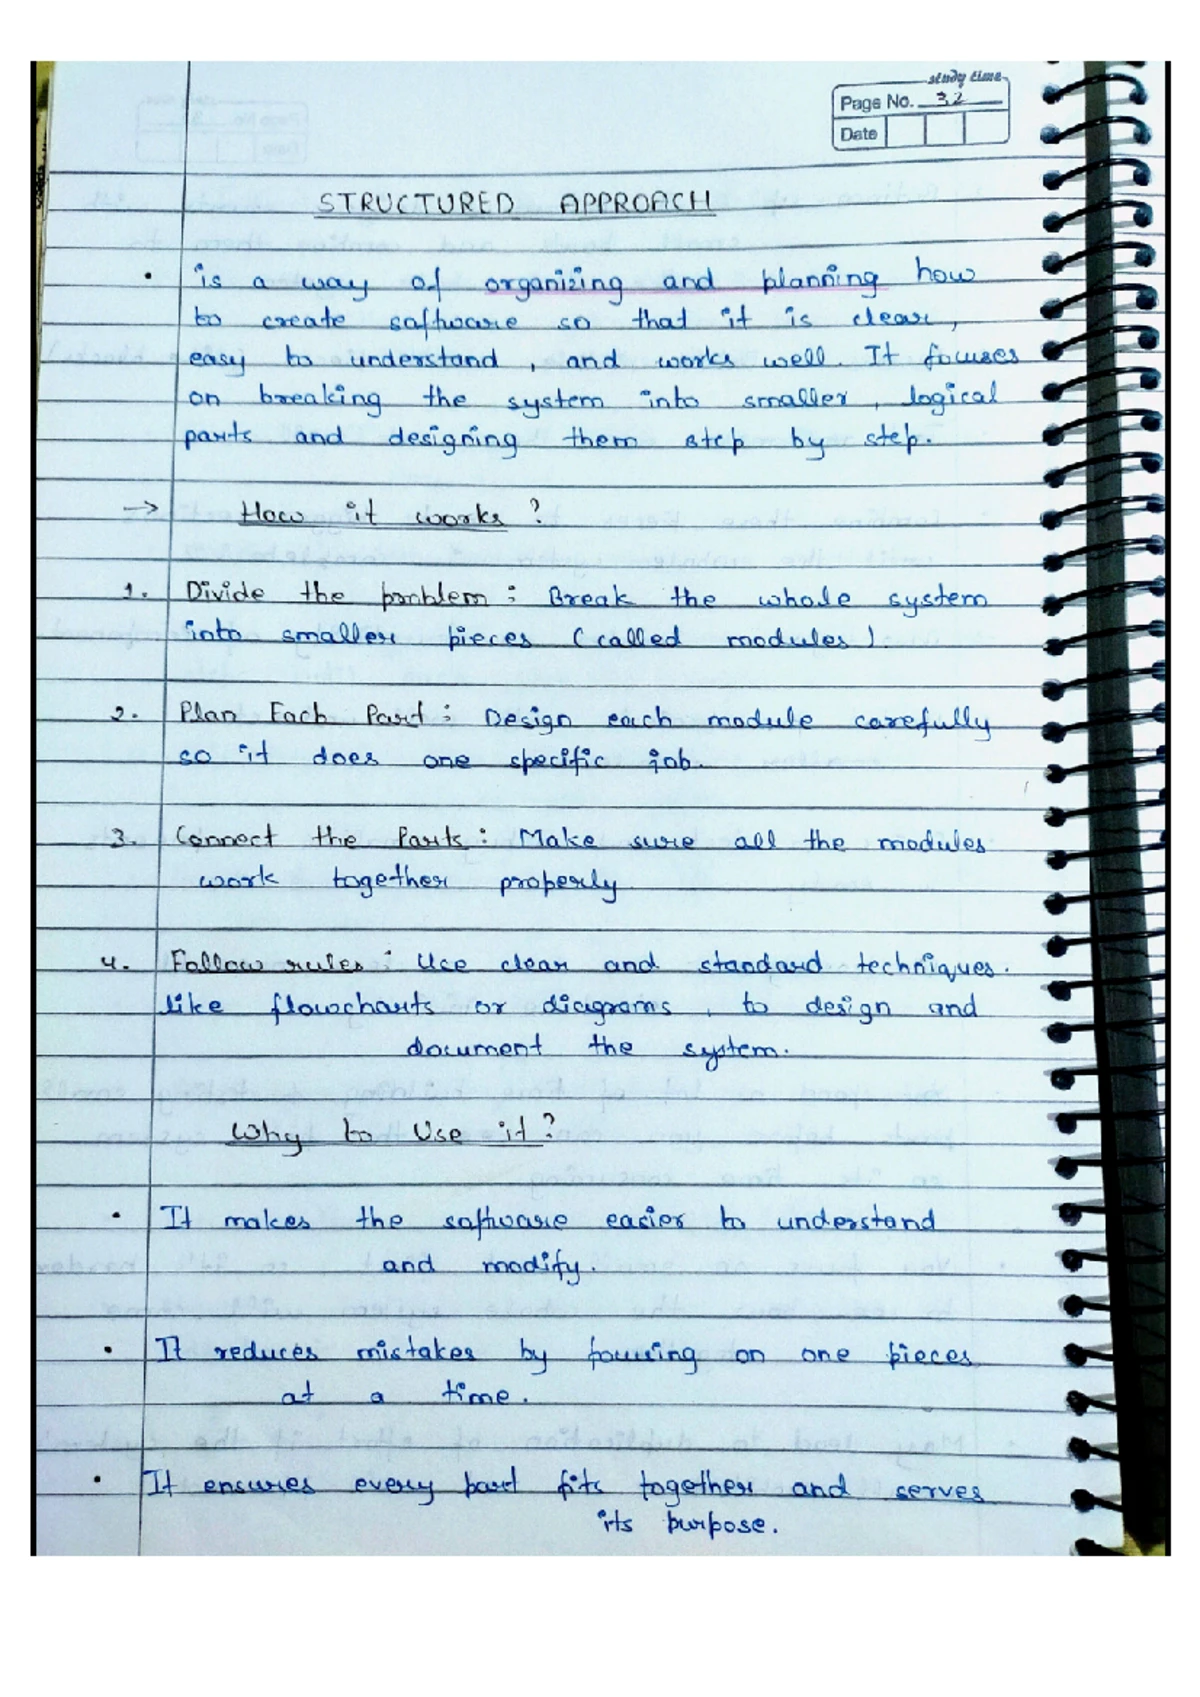 study time
Page No. 32
Date
STRUCTURED APPROACH
• is a way of organizing and planning how
to create software so that it is clear,
easy to understand, and works well. It focuses
on breaking the system into smaller, logical
parts and designing them step by step.
→ How it works?
1. Divide the problem: Break the whole system
into smaller pieces (called modules).
2. Plan Each Part: Design each module carefully
so it does one specific job.
3. Connect the Parts: Make sure all the modules
work together properly
4. Follow rules: Use clear and standard techniques.
like flowcharts or diagrams, to design and
document the system.
Why to Use it?
• It makes the software easier to understand
and modify.
• It reduces mistakes by focusing on one pieces
at a time.
• It ensures every part fits together and serves
its purpose.